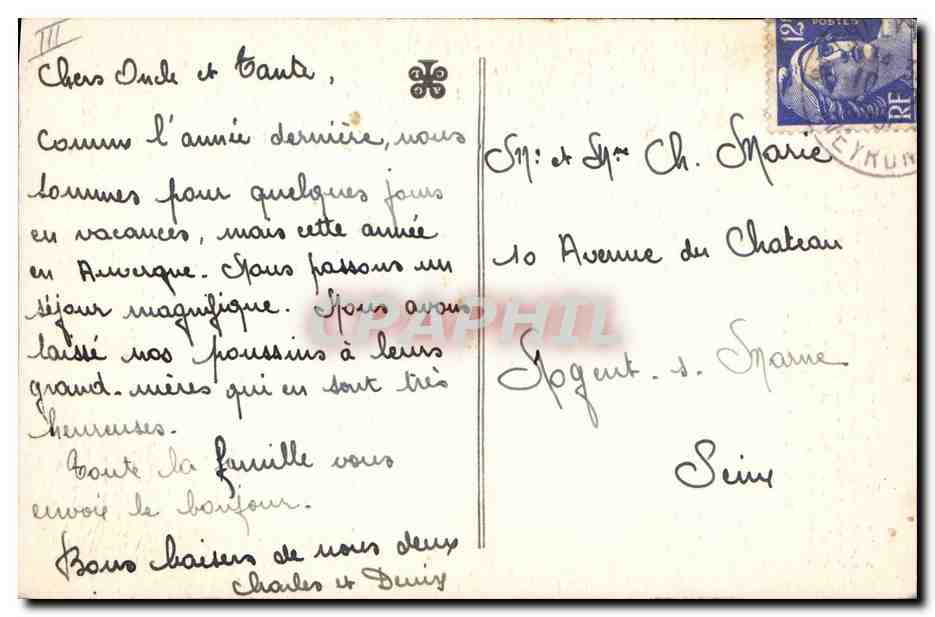 III
Chers Oncle et Tante,
Comme l'année dernière, nous
sommes pour quelques jours
en vacances, mais cette année
en Auvergne. Nous passons un
séjour magnifique. Nous avons
laissé nos poussins à leurs
grand-mères qui en sont très
heureuses.
Toute la famille vous
envoie le bonjour.
Bons baisers de nous deux
Charles et Denise
12F
POSTES
RF
VEYRON
Mr et Mme Ch. Marie
10 Avenue du Chateau
Nogent-s-Marne
Seine
CPAPHIL